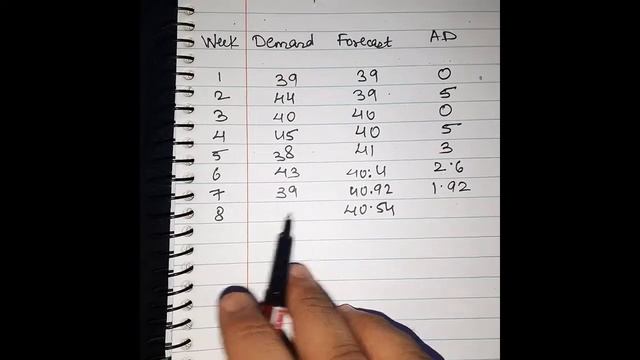 Week Demand Forecast AD
1 39 39 0
2 44 39 5
3 40 40 0
4 45 40 5
5 38 41 3
6 43 40.4 2.6
7 39 40.92 1.92
8 40.54